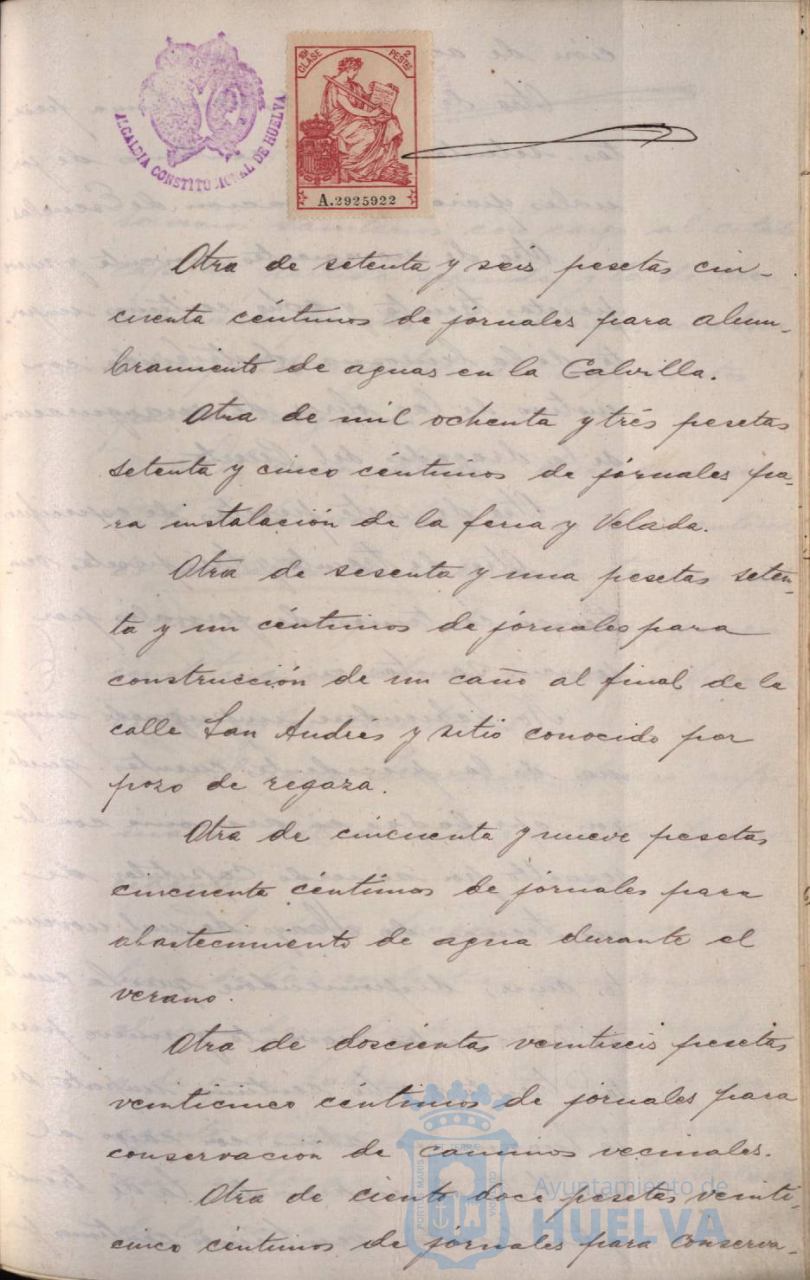 ALCALDIA CONSTITUCIONAL DE HUELVA
10ª CLASE 2 PESTAS
A.2925922
Otra de setenta y seis pesetas cin-
cuenta céntimos de jornales para alum-
bramiento de aguas en la Calvilla.
Otra de mil ochenta y trés pesetas
setenta y cinco céntimos de jornales pa-
ra instalación de la feria y Velada.
Otra de sesenta y una pesetas seten-
ta y un céntimos de jornales para
construcción de un caño al final de la
calle San Andrés y sitio conocido por
pozo de regaza.
Otra de cincuenta y nueve pesetas
cincuenta céntimos de jornales para
abastecimiento de agua durante el
verano.
Otra de doscientas veintiseis pesetas
veinticinco céntimos de jornales para
conservación de caminos vecinales.
Otra de ciento doce pesetas veinti-
cinco céntimos de jornales para conserva-
Ayuntamiento de
HUELVA